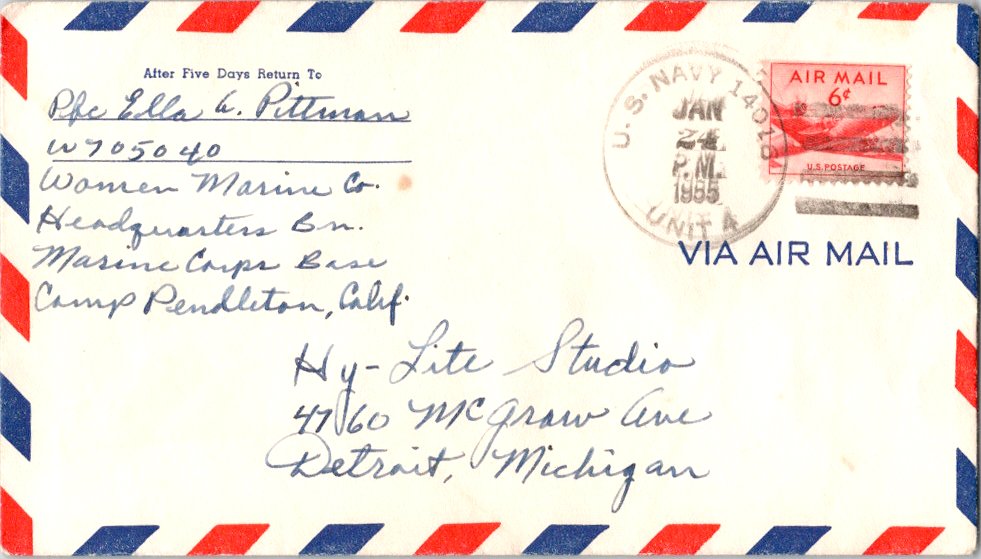 After Five Days Return To
Pfc Ella G. Pittman
W705040
Women Marine Co.
Headquarters Bn.
Marine Corps Base
Camp Pendleton, Calif.
U.S. NAVY 14018
JAN
24
P.M.
1955
UNIT A
AIR MAIL
6¢
U.S. POSTAGE
VIA AIR MAIL
Hy-Lite Studio
4760 McGraw Ave
Detroit, Michigan